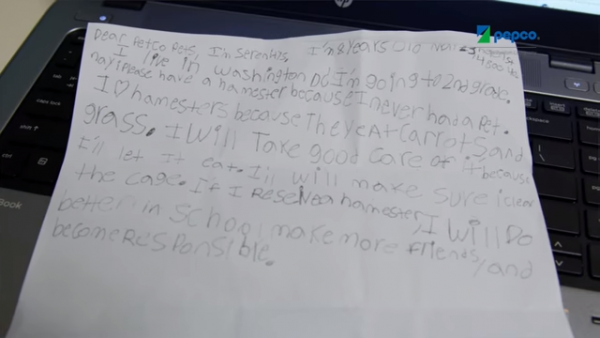 pepco.
Dear Petco Pets, I'm Serenity, I'm 8 years old
I live in Washington DC I'm going to 2nd grade.
may I please have a hamster because I never had a pet.
I ♡ hamesters because They eat carrots, and
grass. I will Take good care of it because
I'll let it eat. I'll will make sure i clean
the cage. If I reseive a hamester, I will Do
better in school make more friends, and
become Responsible.
Book